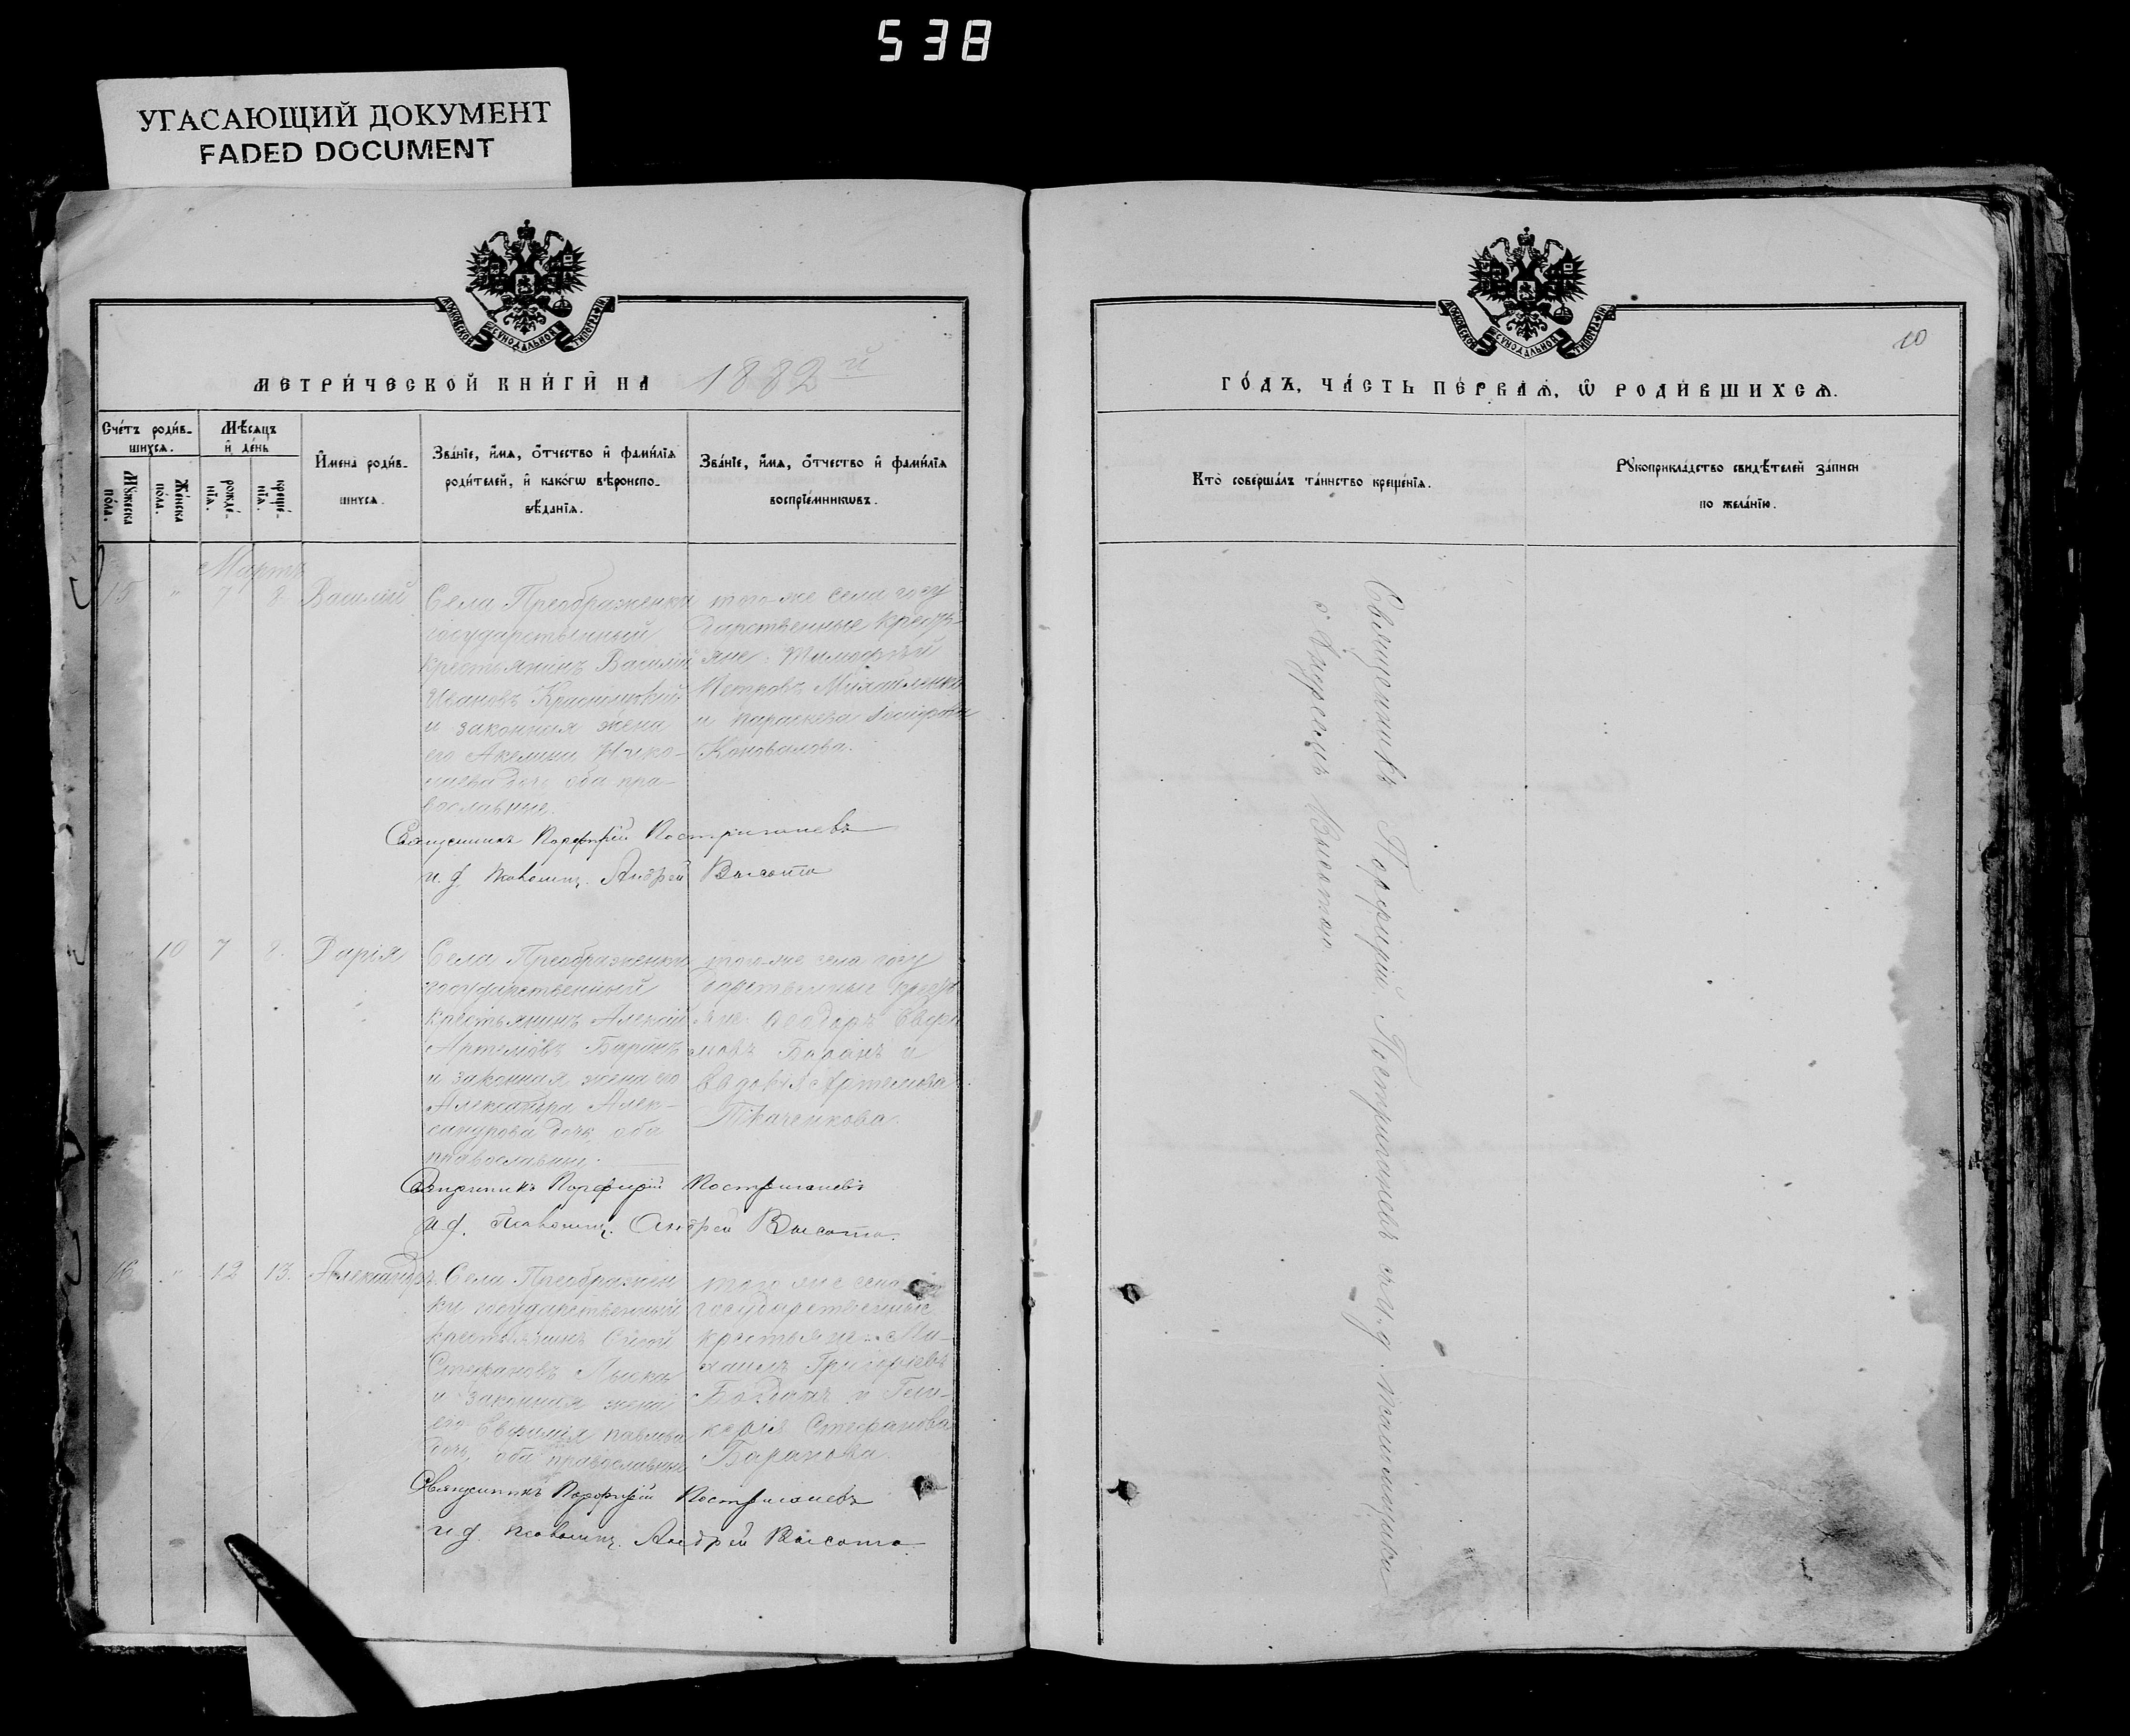 538
УГАСАЮЩИЙ ДОКУМЕНТ
FADED DOCUMENT
МОСКОВСКОЙ СѴНОДАЛЬНОЙ ТИПОГРАФІИ
МЕТРИ́ЧЕСКОЙ КНИ́ГИ НА 1882й
Сче́тъ роди́в-
шихся.
Мѣ́сяцъ
и҆ де́нь
Мꙋ́жеска
по́ла.
Же́нска
по́ла.
рожде́-
нїѧ.
креще́-
нїѧ.
И҆мена̀ роди́в-
шихсѧ.
Зва́нїе, и҆́мѧ, ѻ҆́тчество и҆ фами́лїѧ
роди́телей, и҆ како́гѡ вѣроиспо-
вѣ́данїѧ.
Зва́нїе, и҆́мѧ, ѻ҆́тчество и҆ фами́лїѧ
воспрїе́мникѡвъ.
Мартъ
15 " 7 8. Василій
Села Преображенки
государственный
крестьянинъ Василій
Ивановъ
и законная жена
его Акелина Нико-
лаева дочь, оба пра-
вославные.
того же села госу
дарственные кресть-
яне: Тимофѣй
Петровъ Михайленко
и Параскева
Коновалова.
Священникъ Порфирій Постригачевъ
и. д. Псаломщ. Андрей Высота
" 10 7 8. Дарія
Села Преображенки
государственный
крестьянинъ Алексій
Артемовъ Баранъ
и законная жена его
Александра Алек-
сандрова дочь, оба
православны.
того же села госу
дарственные кресть
яне: Ѳеодоръ
Баранъ и
Евдокія Артемова
Ткаченкова.
Священникъ Порфирій Постригачевъ
и. д. Псаломщ. Андрей Высота.
16 " 12 13. Александръ.
Села Преображен
ки государственный
крестьянинъ
Стефановъ Лыска
и законная жена
его Евфимія Павлова
дочь, оба православные
того же села
государственные
крестьяне: Ми-
хаилъ Григорьевъ
и Гли-
керія Стефанова
Баранова.
Священникъ Порфирій Постригачевъ
и. д. Псаломщ. Андрей Высота.
МОСКОВСКОЙ СѴНОДАЛЬНОЙ ТИПОГРАФІИ
10
ГО́ДЪ, ЧА́СТЬ ПЕ́РВАѦ, Ѡ҆ РОДИ́ВШИХСѦ.
Кто̀ соверша́лъ та́инство креще́нїѧ.
Рꙋкоприкла́дство свидѣ́телей за́писи
по жела́нїю.
Священникъ Порфирій Постригачевъ съ и. д. псаломщика
Высотою